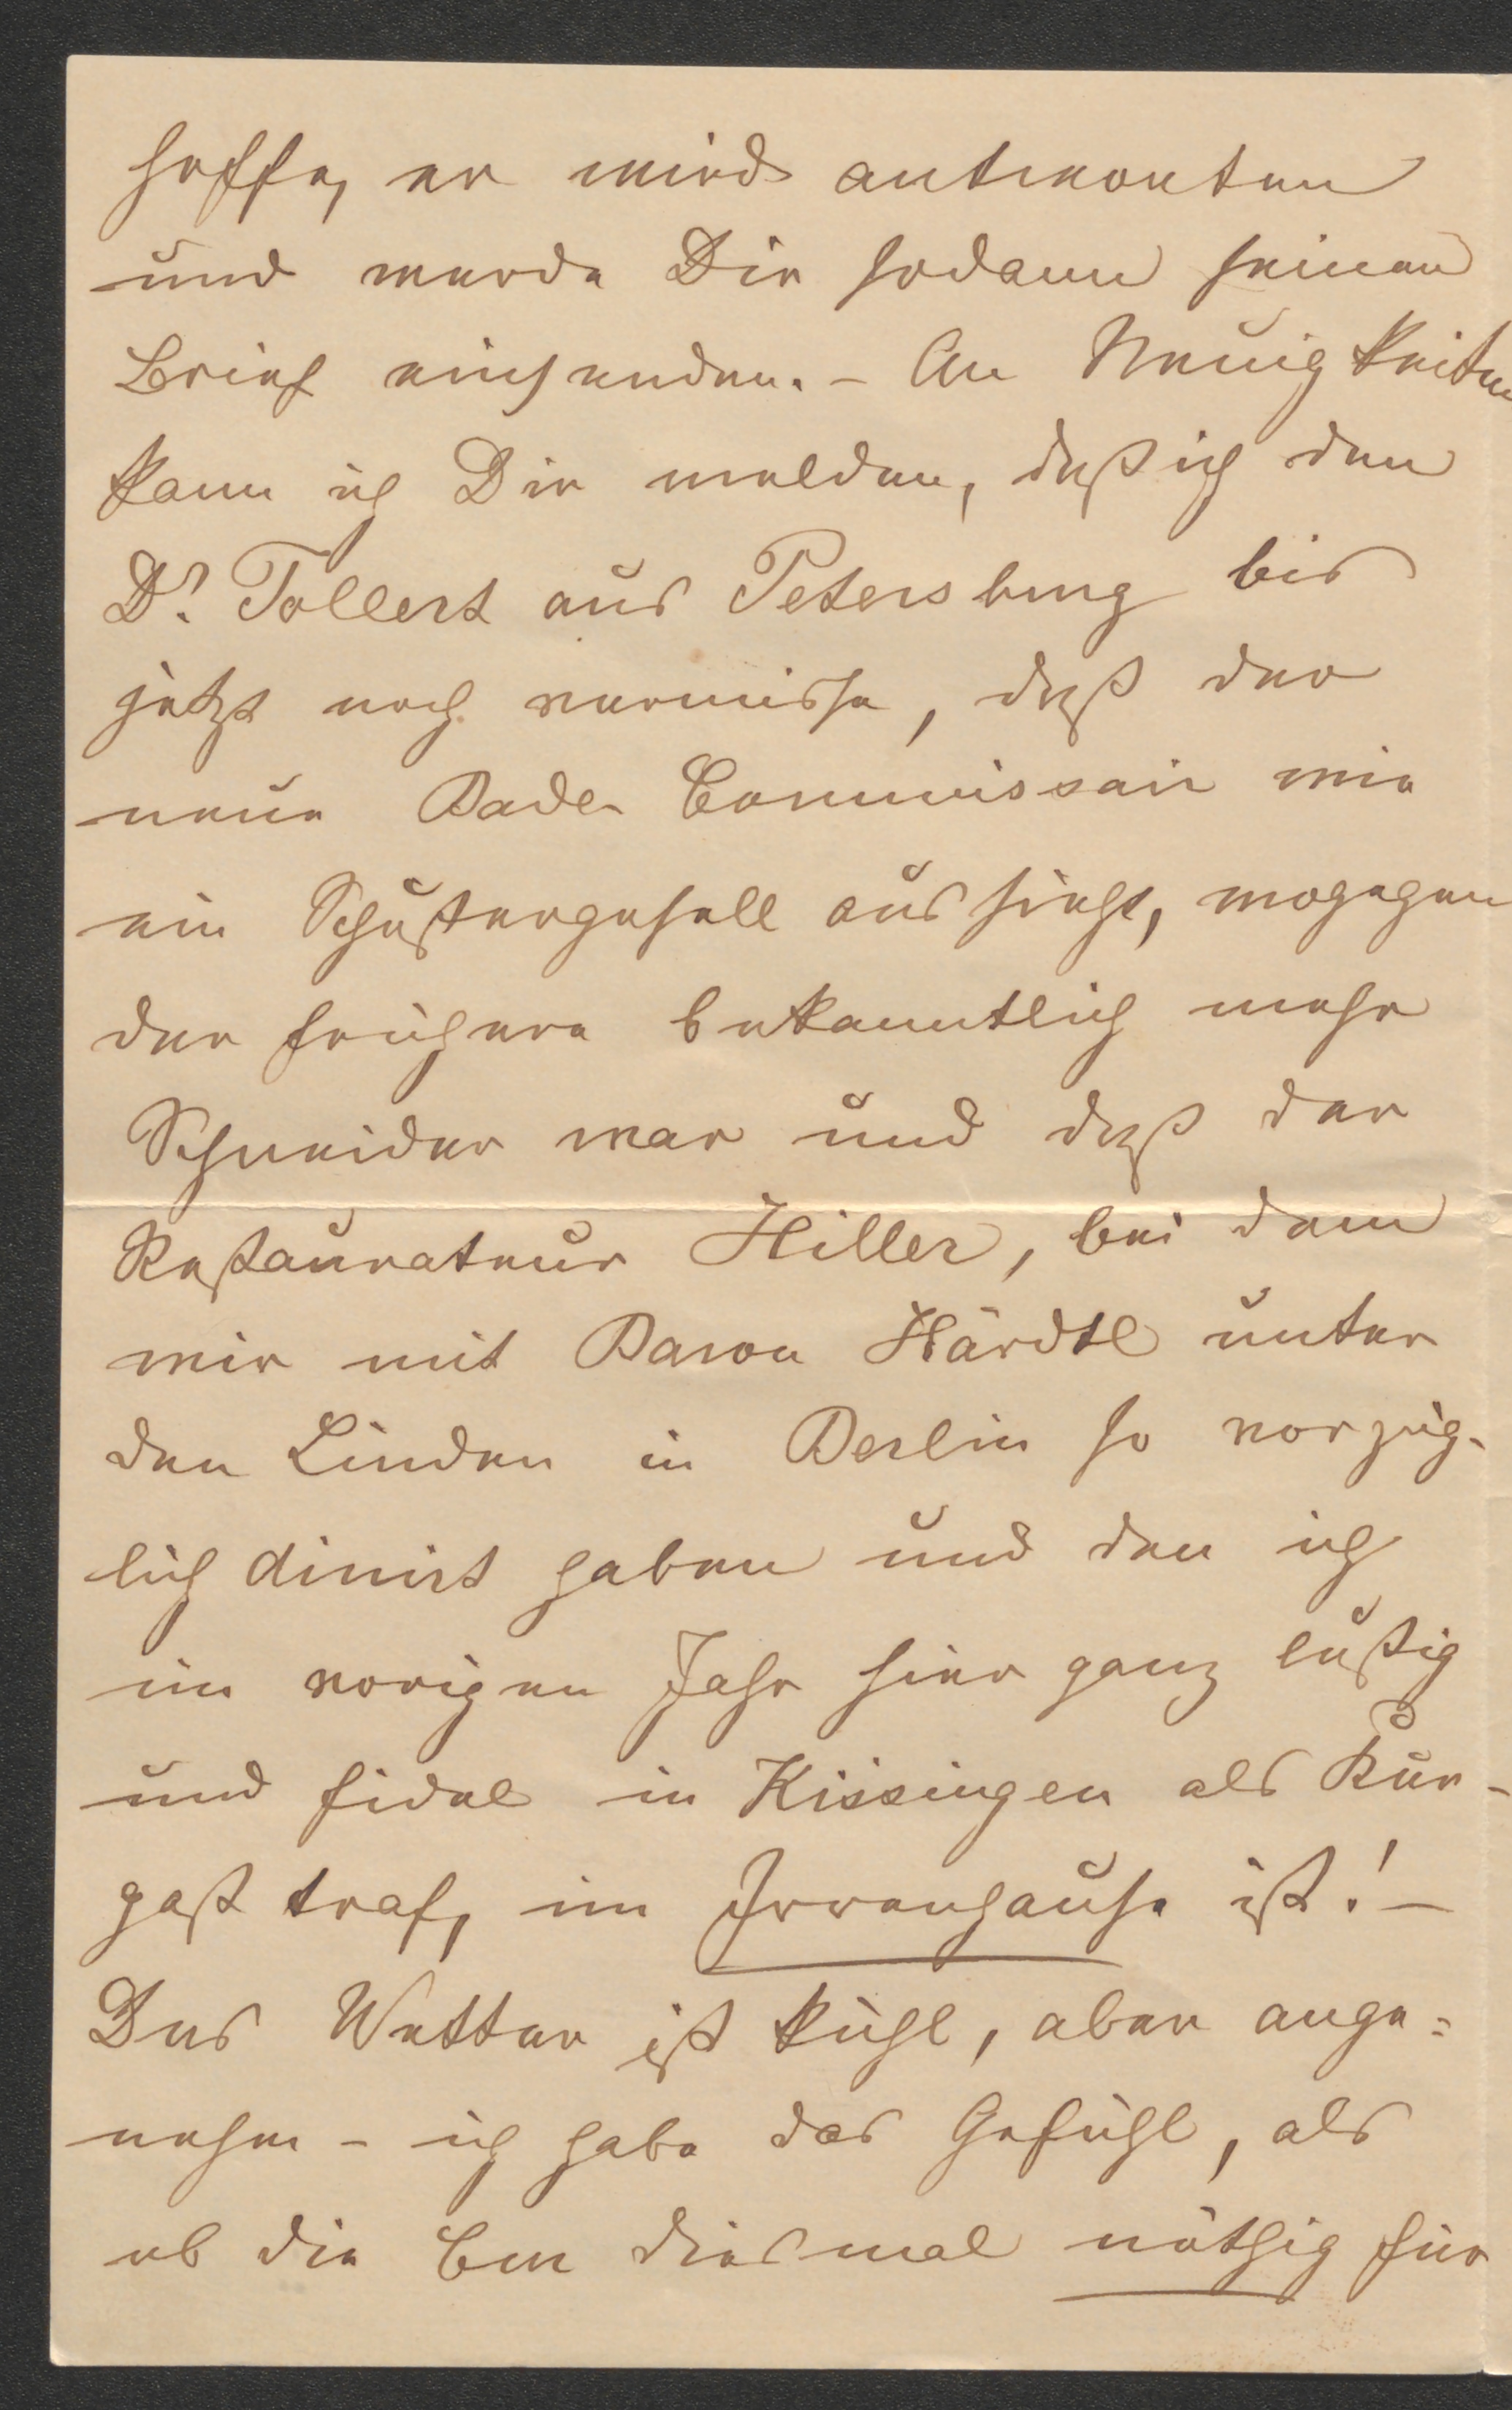 hoffe, er wird antworten
und werde Dir sodann seinen
Brief einsenden. – An Neuigkeiten
kann ich Dir melden, daß ich den
Dr. Tollert aus Petersburg bis
jetzt noch vermisse, daß der
neue Bade Commissair wie
ein Schustergesell aussieht, wogegen
der frühere bekanntlich mehr
Schneider war und daß der
Restaurateur Hiller, bei dem
wir mit Baron Härdtl unter
den Linden in Berlin so vorzüg-
lich dinirt haben und den ich
im vorigen Jahr hier ganz lustig
und fidel in Kissingen als Kur-
gast traf, im Irrenhause ist! –
Das Wetter ist kühl, aber ange=
nehm – ich habe das Gefühl, als
ob die Cur diesmal nöthig für